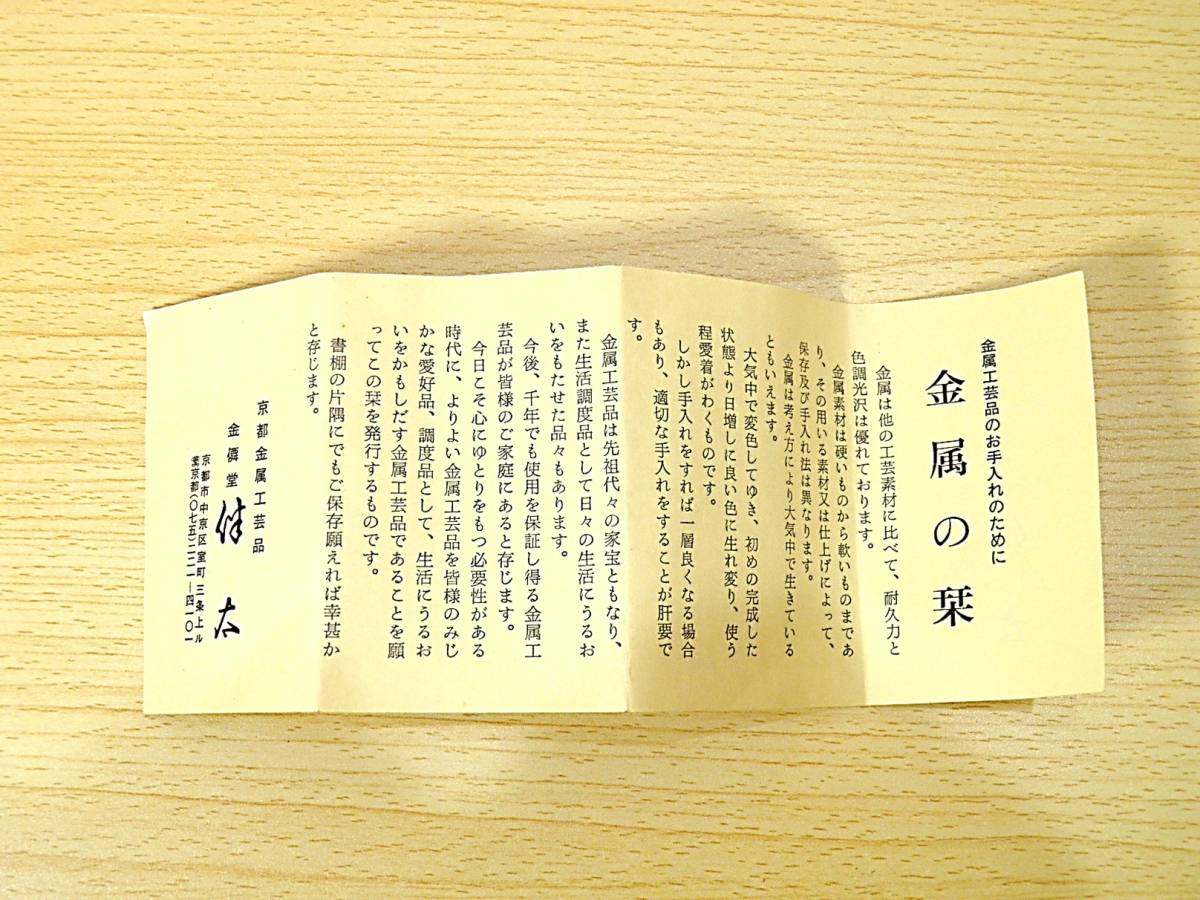 金属工芸品のお手入れのために
金属の栞
金属は他の工芸素材に比べて、耐久力と
色調光沢は優れております。
金属素材は硬いものから軟いものまであ
り、その用いる素材又は仕上げによって、
保存及び手入れ法は異なります。
金属は考え方により大気中で生きている
ともいえます。
大気中で変色してゆき、初めの完成した
状態より日増しに良い色に生れ変り、使う
程愛着がわくものです。
しかし手入れをすれば一層良くなる場合
もあり、適切な手入れをすることが肝要で
す。
金属工芸品は先祖代々の家宝ともなり、
また生活調度品として日々の生活にうるお
いをもたせた品々もあります。
今後、千年でも使用を保証し得る金属工
芸品が皆様のご家庭にあると存じます。
今日こそ心にゆとりをもつ必要性がある
時代に、よりよい金属工芸品を皆様のみじ
かな愛好品、調度品として、生活にうるお
いをかもしだす金属工芸品であることを願
ってこの栞を発行するものです。
書棚の片隅にでもご保存願えれば幸甚か
と存じます。
京都金属工芸品
金僲堂
京都市中京区室町三条上ル
京都(〇七五)二二一―四一〇一